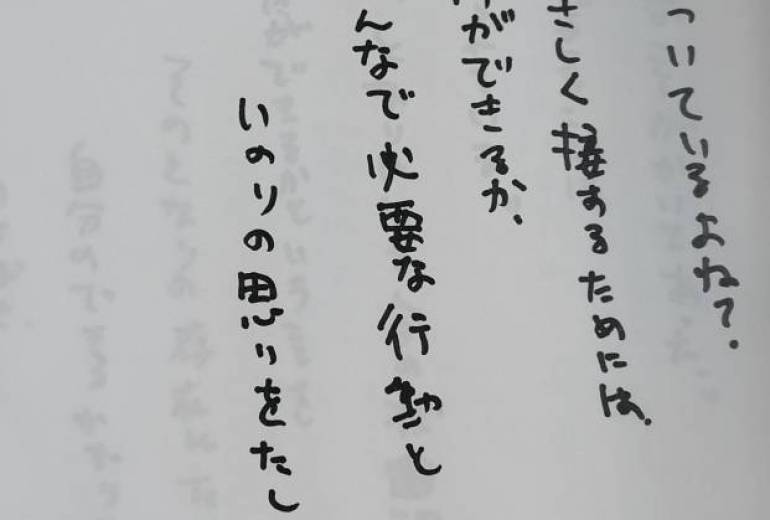 ついているよね?.
さしく接するためには、
ができるか、
んなで必要な行動と
いのりの思いをたし